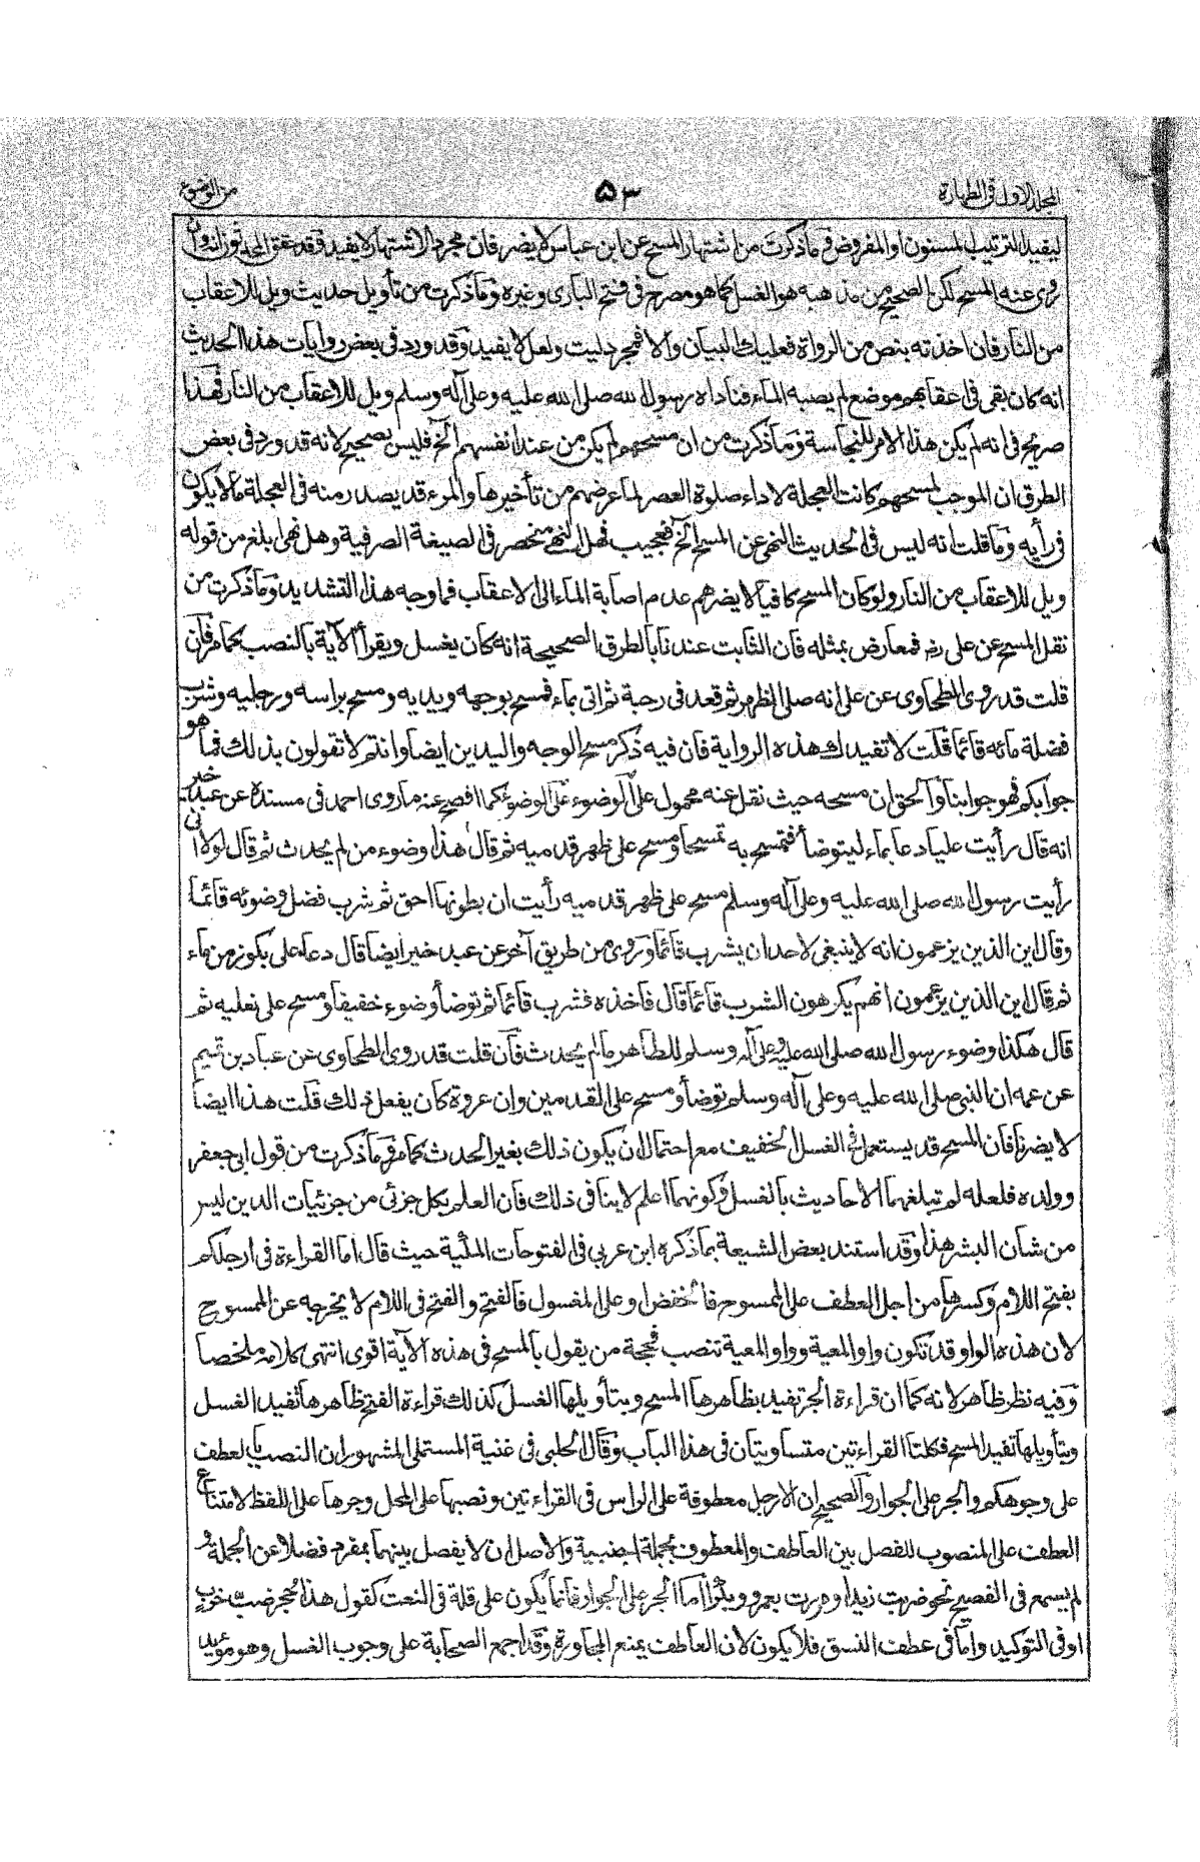 المجلد الاول فى الطهارة
٥٣
من الوضوء
ليفيد الترتيب المسنون او المفروض وما ذكرت من اشتهار المسح عن ابن عباس لا يضر فان مجرد الاشتهار لا يفيد وقد تحقق انه وان
روى عنه المسح لكن الصحيح من مذهبه هو الغسل كما هو مصرح فى فتح البارى وغيره وما ذكرت من تأويل حديث ويل للاعقاب
من النار فان اخذته بنص من الرواة فعليك البيان والا فمجرد ليت ولعل لا يفيد وقد ورد فى بعض روايات هذا الحديث
انه كان بقى فى اعقابهم موضع لم يصبه الماء فناداه رسول الله صلى الله عليه وعلى آله وسلم ويل للاعقاب من النار فهذا
صريح فى انه لم يكن هذا الامر للنجاسة وما ذكرت من ان مسحهم لم يكن من عند انفسهم الخ فليس بصحيح لانه قد ورد فى بعض
الطرق ان الموجب لمسحهم كانت العجلة لاداء صلوة العصر لما عرضهم من تأخيرها والمرء قد يصدر منه فى العجلة ما لا يكون
فى رأيه وما قلت انه ليس فى الحديث النهى عن المسح الخ فعجيب فهل النهى منحصر فى الصيغة الصرفية وهل نهى ابلغ من قوله
ويل للاعقاب من النار ولو كان المسح كافيا لا يضرهم عدم اصابة الماء الى الاعقاب فما وجه هذا التشديد وما ذكرت من
نقل المسح عن على رض فمعارض بمثله فان الثابت عندنا بالطرق الصحيحة انه كان يغسل ويقرأ الآية بالنصب كما مر فان
قلت قد روى الطحاوى عن على انه صلى الظهر ثم قعد فى رحبة ثم اتى بماء فمسح بوجهه ويديه ومسح براسه ورجليه وشرب
فضلة مائه قائما قلت لا تفيدك هذه الرواية فان فيه ذكر مسح الوجه واليدين ايضا وانتم لا تقولون بذلك فما هو
جوابكم فهو جوابنا والحق ان مسحه حيث نقل عنه محمول على الوضوء على الوضوء كما افصح عنه ما روى احمد فى مسنده عن عبد خير
انه قال رأيت عليا دعا بماء ليتوضأ فتمسح به تمسحا ومسح على ظهر قدميه ثم قال هذا وضوء من لم يحدث ثم قال لولا انى
رأيت رسول الله صلى الله عليه وعلى آله وسلم مسح على ظهر قدميه رأيت ان بطونها احق ثم شرب فضل وضوئه قائما
وقال اين الذين يزعمون انه لا ينبغى لاحد ان يشرب قائما وروى من طريق آخر عن عبد خير ايضا قال دعا على بكوز من ماء
ثم قال اين الذين يزعمون انهم يكرهون الشرب قائما قال فاخذه فشرب قائما ثم توضأ وضوء خفيفا ومسح على نعليه ثم
قال هكذا وضوء رسول الله صلى الله عليه وعلى آله وسلم للطاهر مالم يحدث فان قلت قد روى الطحاوى عن عباد بن تميم
عن عمه ان النبى صلى الله عليه وعلى آله وسلم توضأ ومسح على القدمين وان عروة كان يفعل ذلك قلت هذا ايضا
لا يضرنا فان المسح قد يستعمل فى الغسل الخفيف مع احتمال ان يكون ذلك بغير الحدث كما مر وما ذكرت من قول ابى جعفر
وولده فلعله لم تبلغهما الاحاديث بالغسل وكونهما اعلم لا ينافى ذلك فان العلم بكل جزئى من جزئيات الدين ليس
من شان البشر هذا وقد استند بعض الشيعة بما ذكره ابن عربى فى الفتوحات المكية حيث قال اما القراءة فى ارجلكم
بفتح اللام وكسرها من اجل العطف على الممسوح فالخفض او على المغسول فالفتح والفتح فى اللام لا يخرجه عن الممسوح
لان هذه الواو قد تكون واو المعية وواو المعية تنصب فحجة من يقول بالمسح فى هذه الآية اقوى انتهى كلامه ملخصا
وفيه نظر ظاهر لانه كما ان قراءة الجر تفيد بظاهرها المسح وبتأويلها الغسل كذلك قراءة الفتح ظاهرها تفيد الغسل
وبتأويلها تفيد المسح فكلتا القراءتين متساويتان فى هذا الباب وقال الحلبى فى غنية المستملى المشهور ان النصب بالعطف
على وجوهكم والجر على الجوار والصحيح ان الارجل معطوفة على الراس فى القراءتين ونصبها على المحل وجرها على اللفظ لامتناع
العطف على المنصوب للفصل بين العاطف والمعطوف بجملة اجنبية والاصل ان لا يفصل بينهما بمفرد فضلا عن الجملة و
لم يسمع فى الفصيح نحو ضربت زيدا ومررت بعمرو وبكرا اما الجر على الجوار فانما يكون على قلة فى النعت كقول هذا جحر ضب خرب
او فى التوكيد واما فى عطف النسق فلا يكون لان العاطف يمنع المجاورة وقد اجمع الصحابة على وجوب الغسل وهو مؤيد